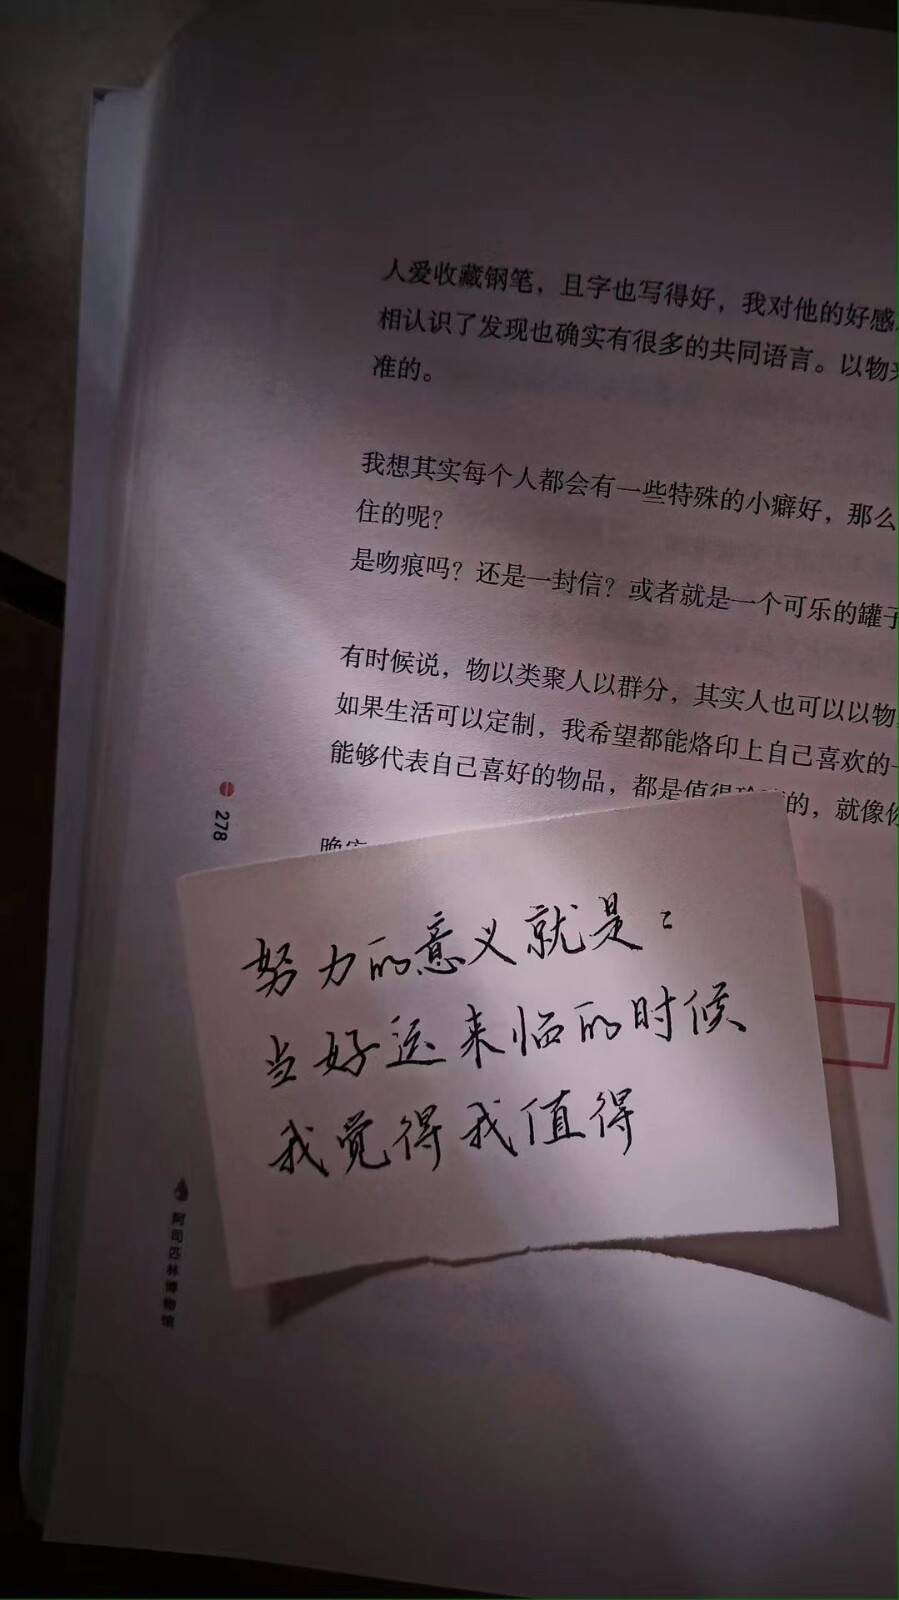 人爱收藏钢笔，且字也写得好，我对他的好感
相认识了发现也确实有很多的共同语言。以物
准的。
我想其实每个人都会有一些特殊的小癖好，那么
住的呢？
是吻痕吗？还是一封信？或者就是一个可乐的罐子
有时候说，物以类聚人以群分，其实人也可以以物
如果生活可以定制，我希望都能烙印上自己喜欢的一
能够代表自己喜好的物品，都是值得的，就像你
278
努力的意义就是：
当好运来临的时候
我觉得我值得
阿司匹林博物馆